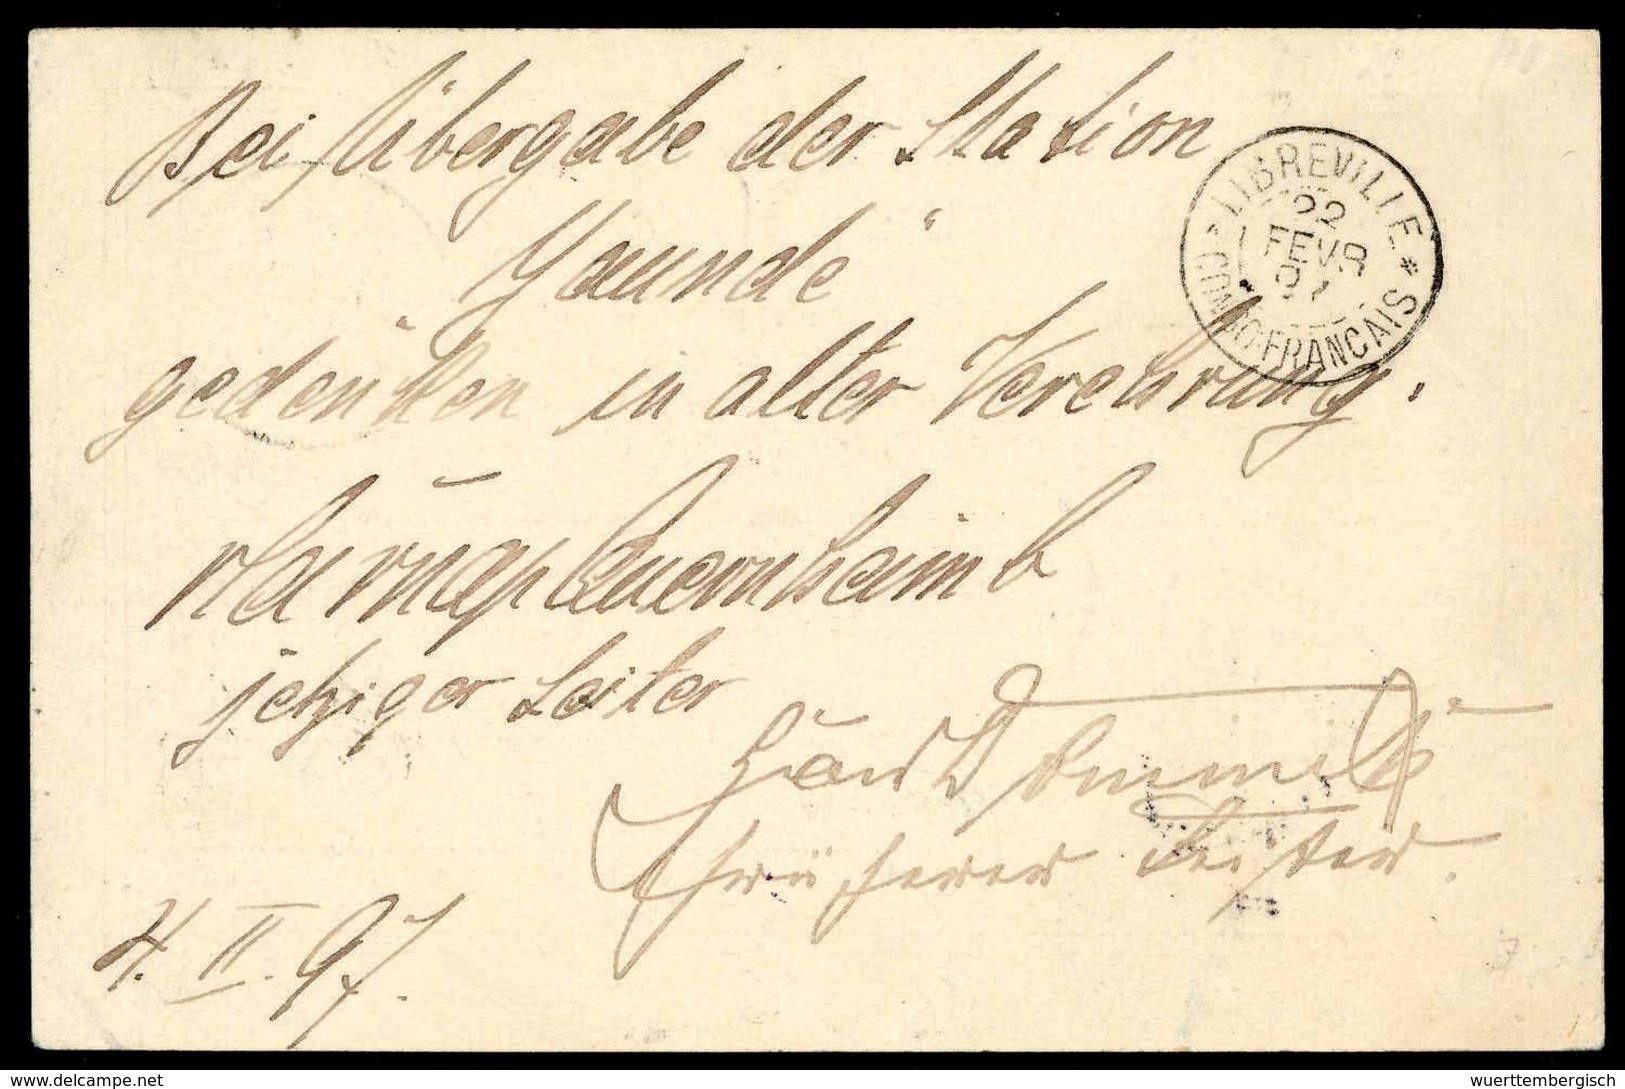 Bei Übergabe der Station
Yaunde"
gedenken in alter Verehrung.
jetziger Leiter
Hans Dominik
früherer Leiter.
4. II. 97.
*LIBREVILLE*
22
FEVR
97
CONGO-FRANCAIS
delcampe.net
wuerttembergisch